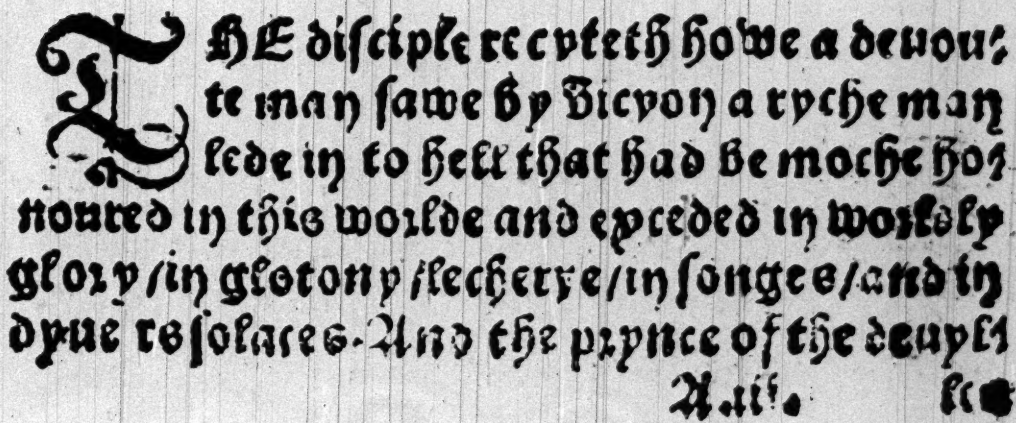 THE disciple recyteth howe a deuou⸗
te man sawe by Vicyon a ryche man
lede in to hell that had be moche ho⸗
noured in this worlde and exceded in worldly
glory/in glotony/lecherye/in songes/and in
dyuers solaces. And the prynce of the deuyl⸗
A.iii.